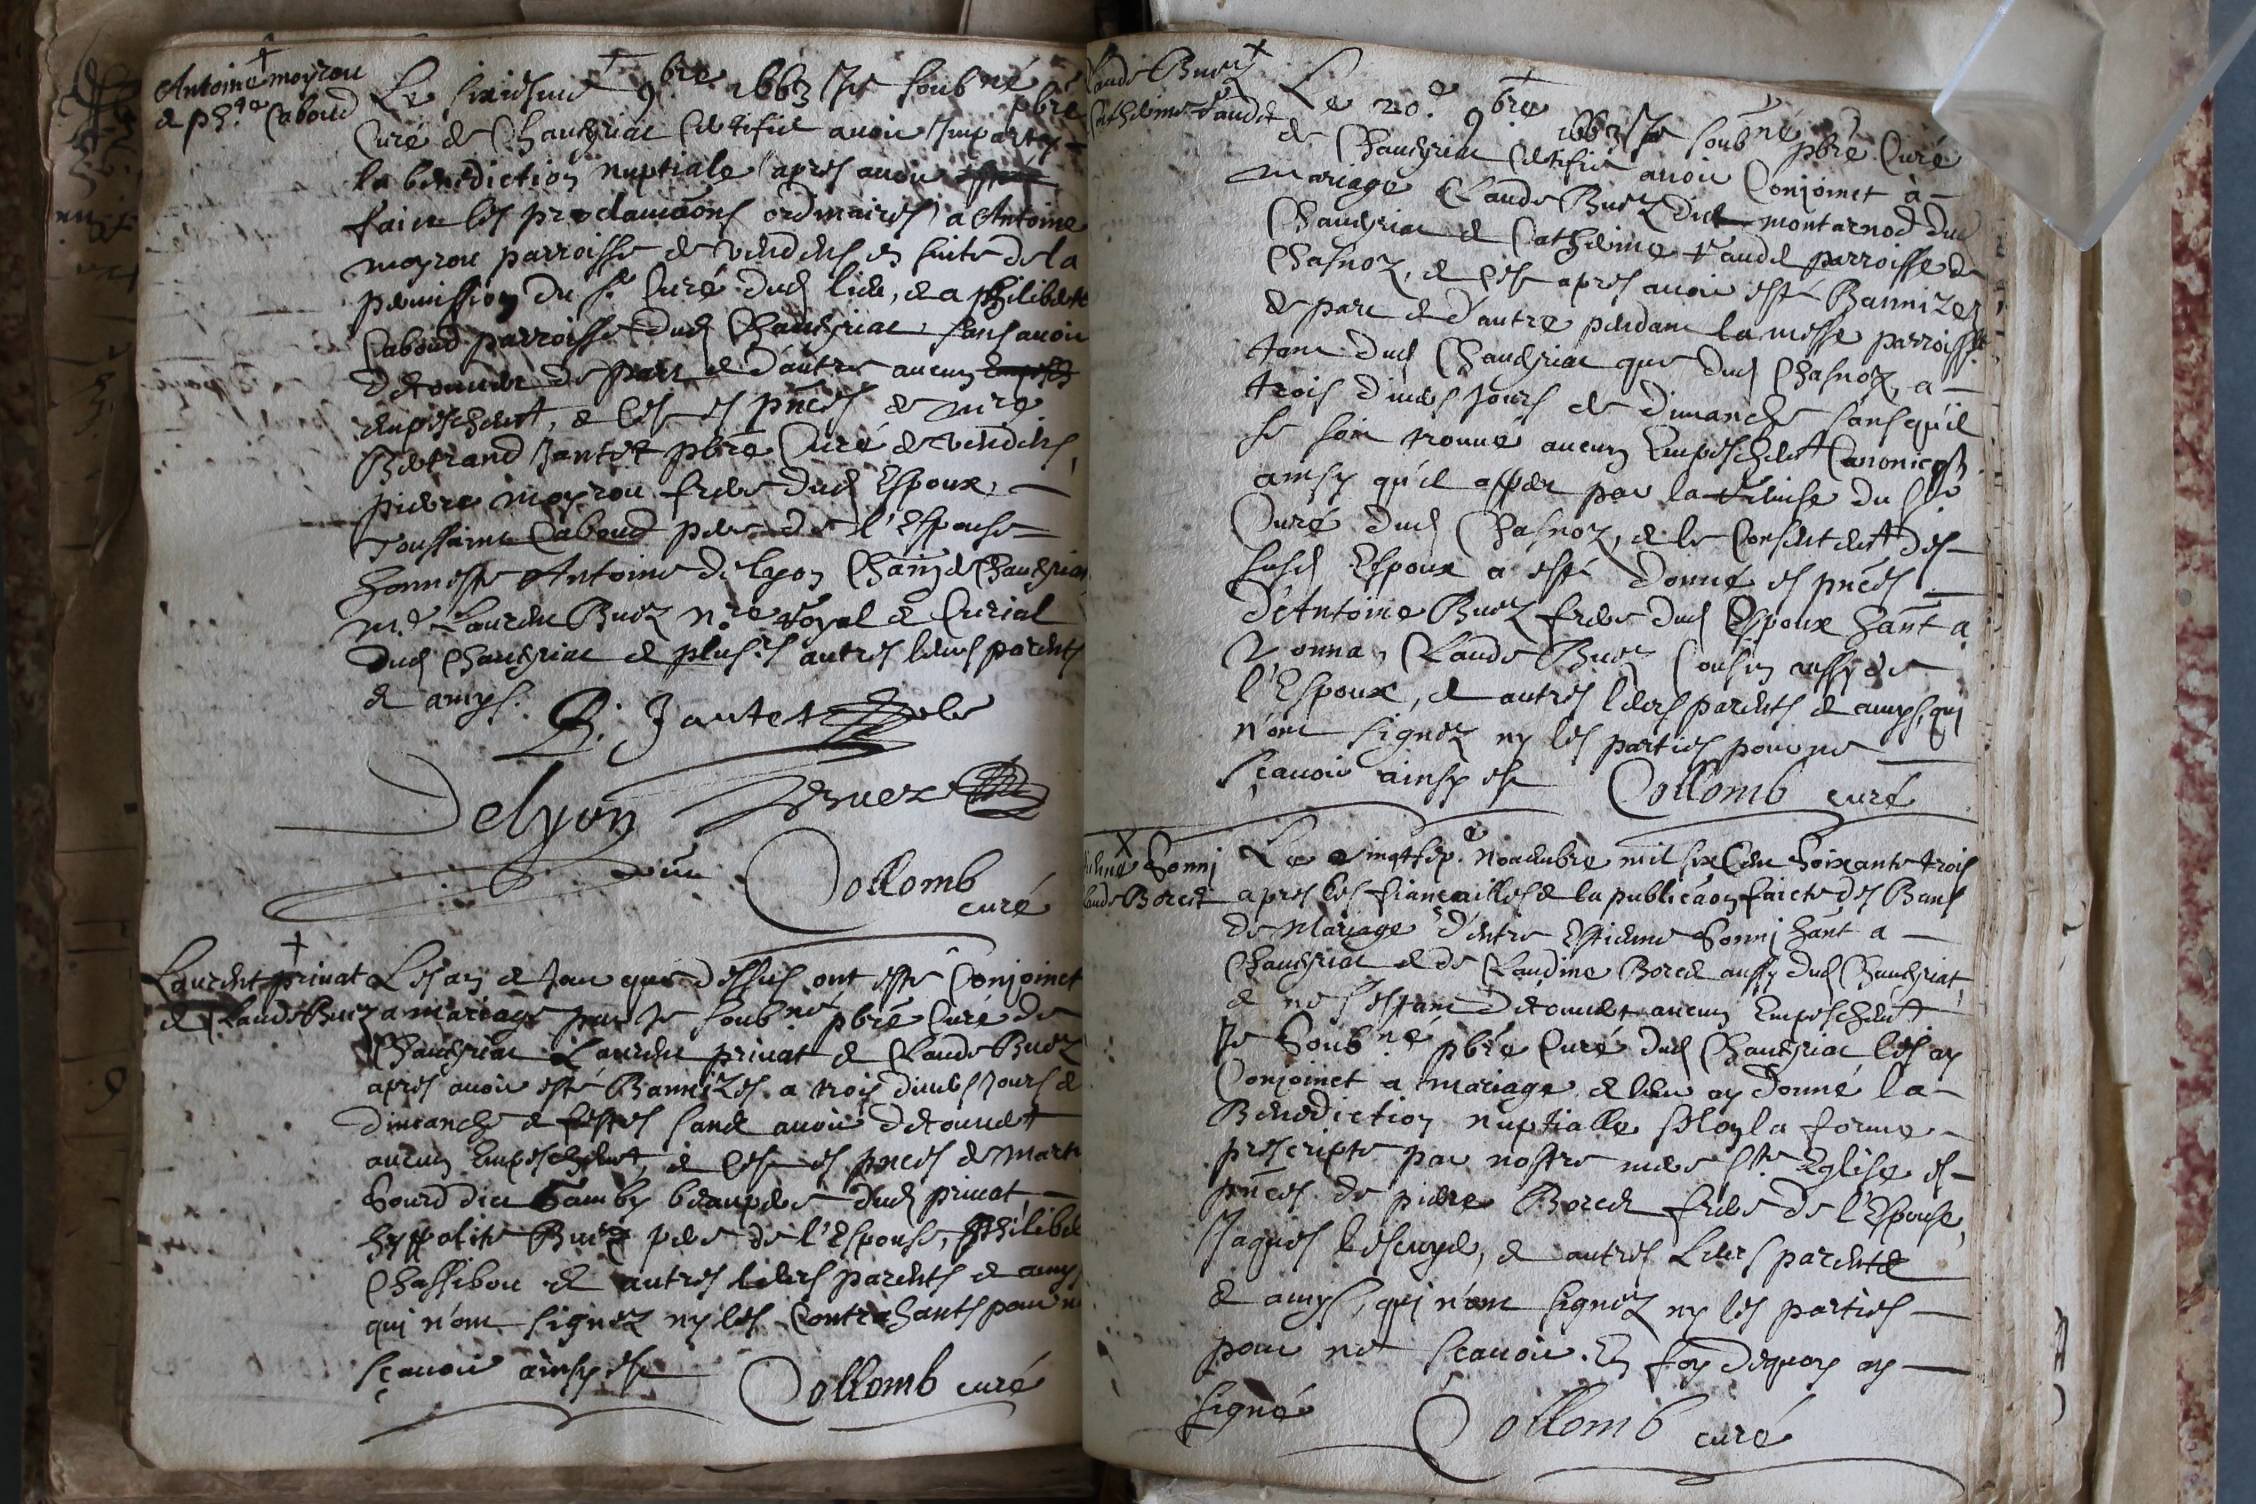 Antoine moyrou
& ph.te Caboud
Le sixiesme 9bre 1663 Je soubné pbre
Curé de Chaveyriat Certifie avoir Imparty
la benediction nuptiale apres avoir
faict les proclamaons ordinaires a Antoine
moyrou parroisse de vendens en suite de la
permission du sr Curé dud lieu, & a philiberte
Caboud parroisse dud Chaveyriat sans avoir
decouvert de part & d'autre aucun
empeschemt, & ce es pnces de mre
Bertrand Jantet pbre Curé de vendens,
pierre moyrou frere dud Espoux,
Toussainct Caboud pere de l'Espouse
honneste Antoine delyon Chain de Chaveyriat
m.e Laurent Buez n.re Royal & Curial
dud Chaveyriat & plus.rs autres leurs parents
& amys.
B. Jantet
Delyon Buez
Collomb
curé
Laurent privat
& Claude Buez
Les an & Jour que dessus ont esté Conjoinct
a mariage par Je soubné pbre Curé de
Chaveyriat Laurent privat & Claude Buez
apres avoir esté Bannizes a trois divers Jours de
dimanche & festes sans avoir decouvert
aucun Empeschemt, & ce es pnces de Mart
Gourd dict Gamby beaupere dud privat
hyppolite Buez pere de l'Espouse, philibe
Chassibou & autres leurs parents & amys
qui n'ont signez ny les Contrahants pour n
sçavoir ainsy est Collomb curé
Claude Buez
Catherine
Le 20e 9bre 1663 Je soubné pbre Curé
de Chaveyriat Certifie avoir Conjoinct à
mariage Claude Buez dict montarnod dud
Chaveyriat & Catherine parroisse de
Chasnoz, & ce apres avoir esté Bannizes
de part & d'autre pendant la messe parroiss
tant dud Chaveyriat que dud Chasnoz, a
trois divers Jours de dimanche sans qu'il
se soit trouvé aucun Empeschemt Canonicq
ainsy qu'il apper par la remise du sr
Curé dud Chasnoz, & le Consentemt des
susd Espoux a esté donné es pnces
d'Antoine Buez frere dud Espoux hant a
Vonnas Claude Buez Cousin aussy de
l'Espoux, & autres leurs parents & amys, qui
n'ont signez ny les parties pour ne
sçavoir ainsy est Collomb curé
Estienne Gonni
Claude Borcet
Le vingtsep.e novembre mil six Cent Soixante trois
apres les fiancailles & la publicaon faicte des Bans
de Mariage d'entre Estienne Gonni hant a
Chaveyriat & de Claudine Borcet aussy dud Chaveyriat,
& ne s'estant decouvert aucun Empeschemt
Je Soubné pbre Curé dud Chaveyriat les ay
Conjoinct a mariage & leur ay donné la
Benediction nuptialle selon la forme
prescripte par nostre mere Ste Eglise es
pnces de pierre Borcet frere de l'Espouse,
Jaques lescuyer, & autres Leurs parents
& amys, qui n'ont signez ny les parties
pour ne sçavoir. En foy dequoy ay
signé
Collomb curé